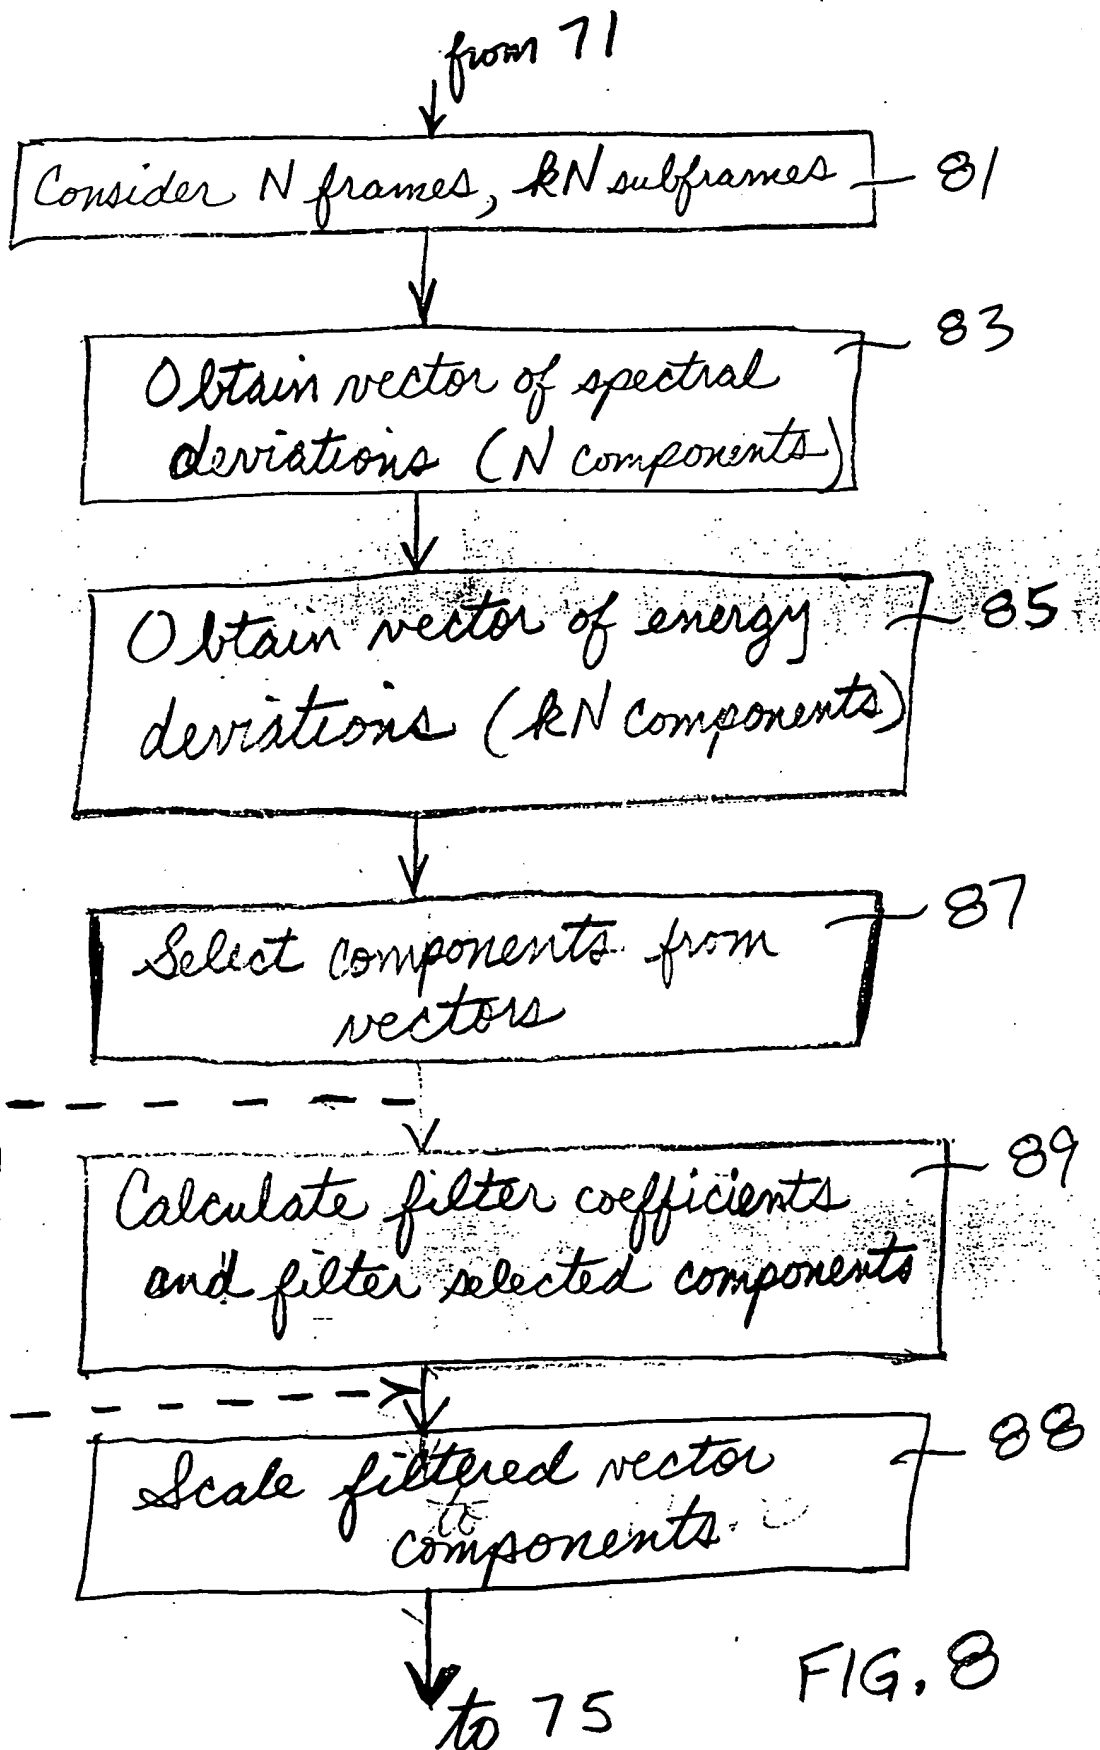 from 71
Consider N frames, kN subframes
81
83
Obtain vector of spectral
deviations (N components)
Obtain vector of energy
85
deviations (kN components)
87
Select components from
vectors
89
Calculate filter coefficients
and filter selected components
88
Scale filtered vector
components
FIG. 8
to 75